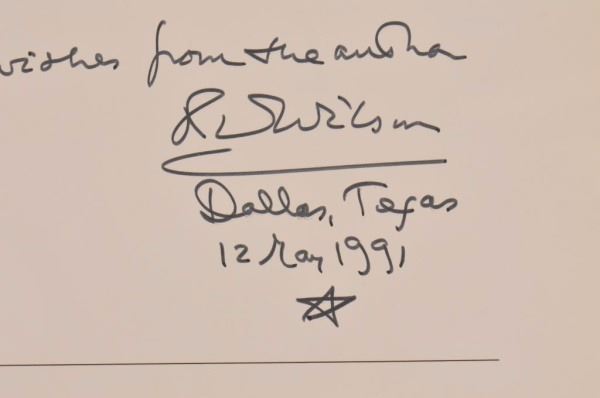 wishes from the author
R L Wilson
Dallas, Texas
12 May 1991